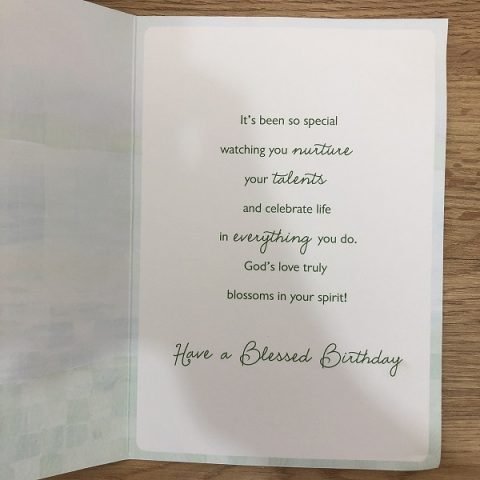 It's been so special
watching you nurture
your talents
and celebrate life
in everything you do.
God's love truly
blossoms in your spirit!
Have a Blessed Birthday